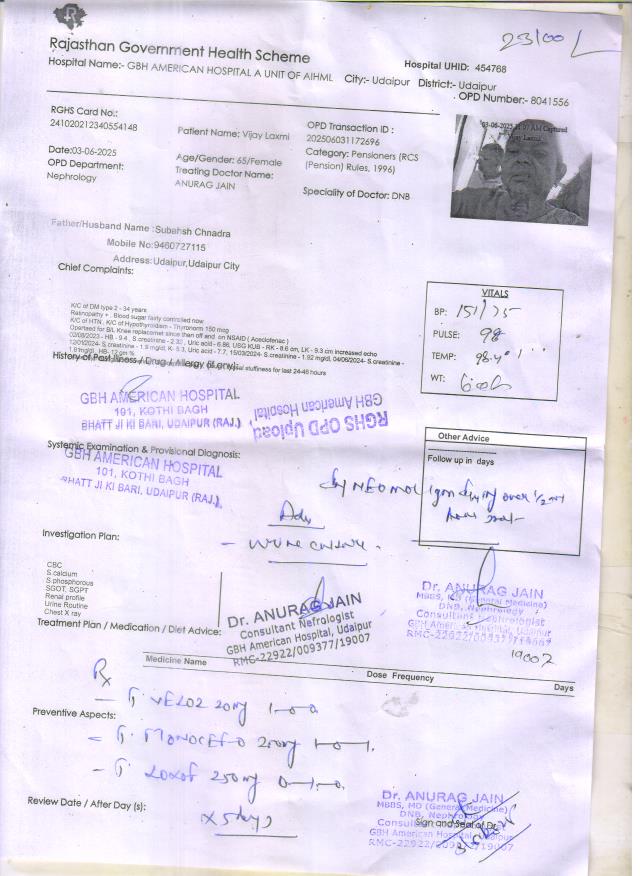 R
23/00
Rajasthan Government Health Scheme
Hospital UHID: 454768
Hospital Name:- GBH AMERICAN HOSPITAL A UNIT OF AIHML City:- Udaipur District:- Udaipur
OPD Number:- 8041556
RGHS Card No.:
241020212340554148
Patient Name: Vijay Laxmi
OPD Transaction ID :
202506031172696
Date:03-06-2025
Age/Gender: 65/Female
Category: Pensioners (RCS (Pension) Rules, 1996)
OPD Department:
Nephrology
Treating Doctor Name:
ANURAG JAIN
Speciality of Doctor: DNB
03-06-2025 11:07 AM Captured
Vijay Laxmi
Father/Husband Name :Subahsh Chnadra
Mobile No:9460727115
Address:Udaipur,Udaipur City
Chief Complaints:
K/C of DM type 2 - 34 years
Retinopathy + , Blood sugar fairly controlled now
K/C of HTN , K/C of Hypothyroidism - Thyronorm 150 mcg
Opertaed for B/L Knee replacemet since then off and on NSAID ( Aceclofenac )
02/08/2023- HB - 9.4 , S.creatinine - 2.30 , Uric acid - 6.86, USG KUB - RK - 8.6 cm, LK - 9.3 cm increased echo
12/01/2024- S.creatinine - 1.9 mg/dl, K- 5.3, Uric acid - 7.7, 15/03/2024- S.creatinine - 1.92 mg/dl, 04/06/2024- S.creatinine -
1.91mg/dl, HB- 12 gm %
stuffiness for last 24-48 hours
History of Past Illness / Drug / Allergy (if any):
VITALS
BP: 151/75
PULSE: 98
TEMP: 98.4°
WT:
GBH AMERICAN HOSPITAL
101, KOTHI BAGH
BHATT JI KI BARI, UDAIPUR (RAJ.)
RGHS OPD Upload
GBH American Hospital
Systemic Examination & Provisional Diagnosis:
GBH AMERICAN HOSPITAL
101, KOTHI BAGH
BHATT JI KI BARI, UDAIPUR (RAJ.)
Other Advice
Follow up in days
NEOMOL 1gm over 1/2
Adv
Investigation Plan:
- urine culture .
CBC
S.calcium
S.phosphorous
SGOT, SGPT
Renal profile
Urine Routine
Chest X ray
Dr. ANURAG JAIN
Consultant Nefrologist
GBH American Hospital, Udaipur
RMC-22922/009377/19007
Dr. ANURAG JAIN
MBBS, MD (General Medicine)
DNB, Nephrology
Consultant Nephrologist
GBH American Hospital, Udaipur
RMC-22922/009377/19007
19007
Treatment Plan / Medication / Diet Advice:
Medicine Name
Dose Frequency
Days
Rx
- T. 20mg 1-0-0
Preventive Aspects:
- T. MONOCEF O 200mg 1-0-1.
- T. 250mg 0-1-0.
Review Date / After Day (s):
x 5 days
Dr. ANURAG JAIN
MBBS, MD (General Medicine)
DNB, Nephrology
Sign and Seal of Dr.
GBH American Hospital, Udaipur
RMC-22922/009377/19007